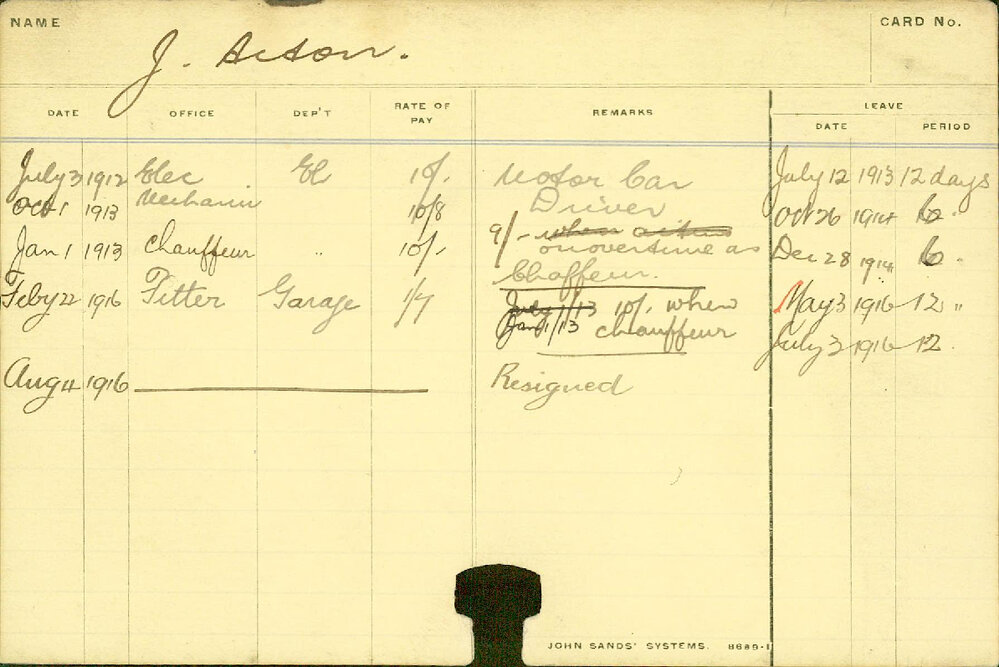 NAME
CARD No.
J. Acton.
DATE OFFICE DEP'T RATE OF PAY REMARKS LEAVE
DATE PERIOD
July 3 1912 Elec El 10/. Motor Car July 12 1913 12 days
Oct 1 1913 Mechanic 10/8 Driver Oct 26 1914 6 "
9/- when
Jan 1 1913 chauffeur " 10/- on overtime as Dec 28 1914 6 "
Chaffeur.
Feby 22 1916 Fitter Garage 1/7 July 1/13 10/. when May 3 1916 12 "
Jan 1/13 chauffeur July 3 1916 12.
Aug 4 1916 Resigned
JOHN SANDS' SYSTEMS. 8689-1